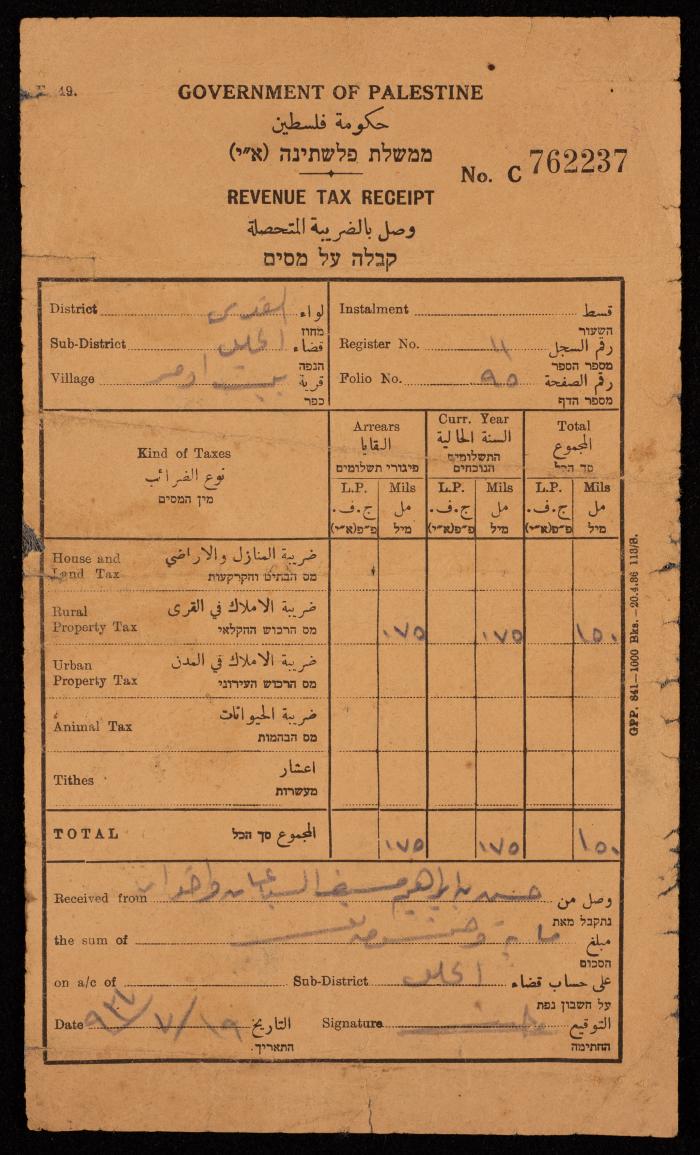 F. 49.
GOVERNMENT OF PALESTINE
حكومة فلسطين
ממשלת פלשתינה (א״י)
No. C 762237
REVENUE TAX RECEIPT
وصل بالضريبة المتحصلة
קבלה על מסים
District القدس لواء
מחוז
Sub-District الخليل قضاء
הנפה
Village بيت اومر قرية
כפר
Instalment قسط
השעור
Register No. ١١ رقم السجل
מספר הספר
Folio No. ٩٥ رقم الصفحة
מספר הדף
Kind of Taxes
نوع الضرائب
מין המסים
Arrears
البقايا
פיגורי תשלומים
Curr. Year
السنة الحالية
התשלומים
הנוכחים
Total
المجموع
סך הכל
L.P. Mils L.P. Mils L.P. Mils
ج.ف. مل ج.ف. مل ج.ف. مل
פ״פ(א״י) מיל פ״פ(א״י) מיל פ״פ(א״י) מיל
House and ضريبة المنازل والاراضي
Land Tax מס הבתים והקרקעות
Rural ضريبة الاملاك في القرى
Property Tax מס הרכוש החקלאי
٠٧٥ ٠٧٥ ١٥٠
Urban ضريبة الاملاك في المدن
Property Tax מס הרכוש העירוני
Animal Tax ضريبة الحيوانات
מס הבהמות
Tithes اعشار
מעשרות
TOTAL המجموع סך הכל
٠٧٥ ٠٧٥ ١٥٠
Received from وصل من
נתקבל מאת
the sum of ماية وخمسون مبلغ
הסכום
on a/c of Sub-District الخليل على حساب قضاء
על חשבון נפת
Date ١٩/٧/٩٣٧ التاريخ Signature التوقيع
התאריך. החתימה
GPP. 841—1000 Bks.—20.4.36 113/8.